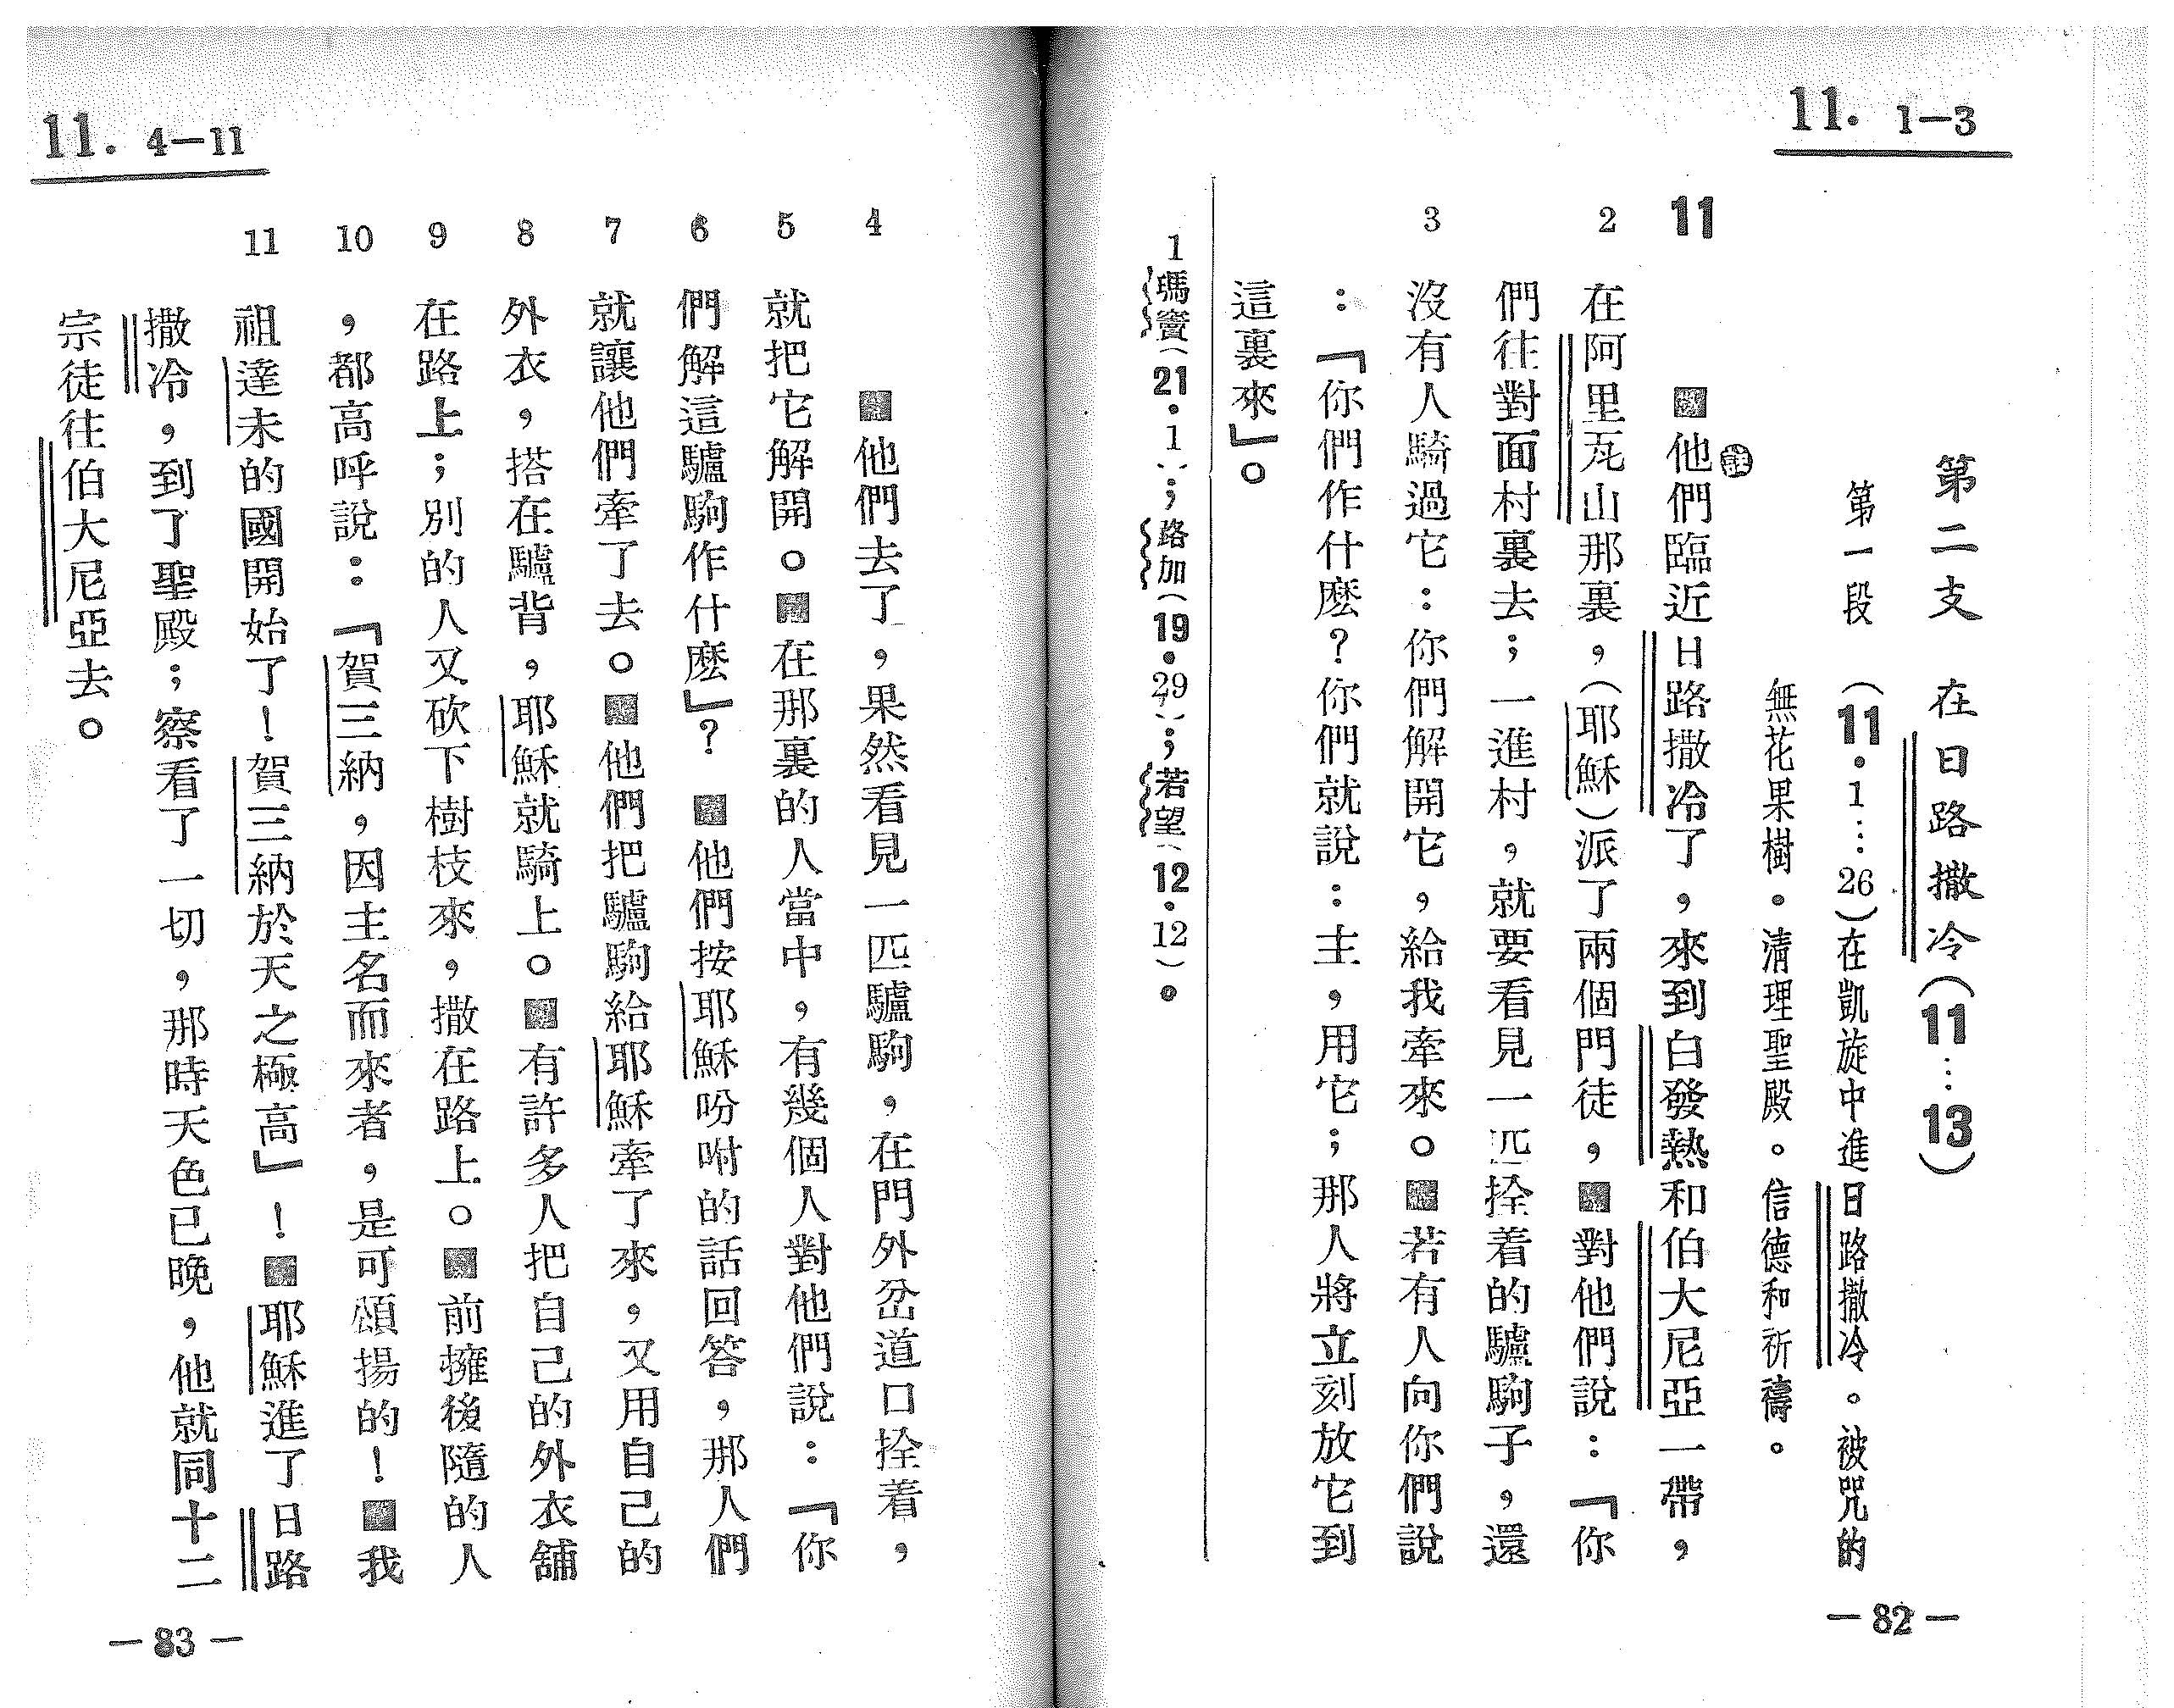 11. 1—3
第二支 在日路撒冷(11…13)
第一段 (11•1…26)在凱旋中進日路撒冷。被咒的
無花果樹。清理聖殿。信德和祈禱。
11 ■他們臨近日路撒冷了，來到白發熱和伯大尼亞一帶，
註
2 在阿里瓦山那裏，(耶穌)派了兩個門徒，■對他們說：「你
們往對面村裏去；一進村，就要看見一匹拴着的驢駒子，還
3 沒有人騎過它：你們解開它，給我牽來。■若有人向你們說
：「你們作什麼？你們就說：主，用它；那人將立刻放它到
這裏來」。
1瑪竇(21•1);路加(19•29);若望(12•12)。
—82—
11. 4—11
4 ■他們去了，果然看見一匹驢駒，在門外岔道口拴着，
5 就把它解開。■在那裏的人當中，有幾個人對他們說：「你
6 們解這驢駒作什麼」？■他們按耶穌吩咐的話回答，那人們
7 就讓他們牽了去。■他們把驢駒給耶穌牽了來，又用自己的
8 外衣，搭在驢背，耶穌就騎上。■有許多人把自己的外衣舖
9 在路上；別的人又砍下樹枝來，撒在路上。■前擁後隨的人
10 ，都高呼說：「賀三納，因主名而來者，是可頌揚的！■我
11 祖達未的國開始了！賀三納於天之極高」！■耶穌進了日路
撒冷，到了聖殿；察看了一切，那時天色已晚，他就同十二
宗徒往伯大尼亞去。
—83—